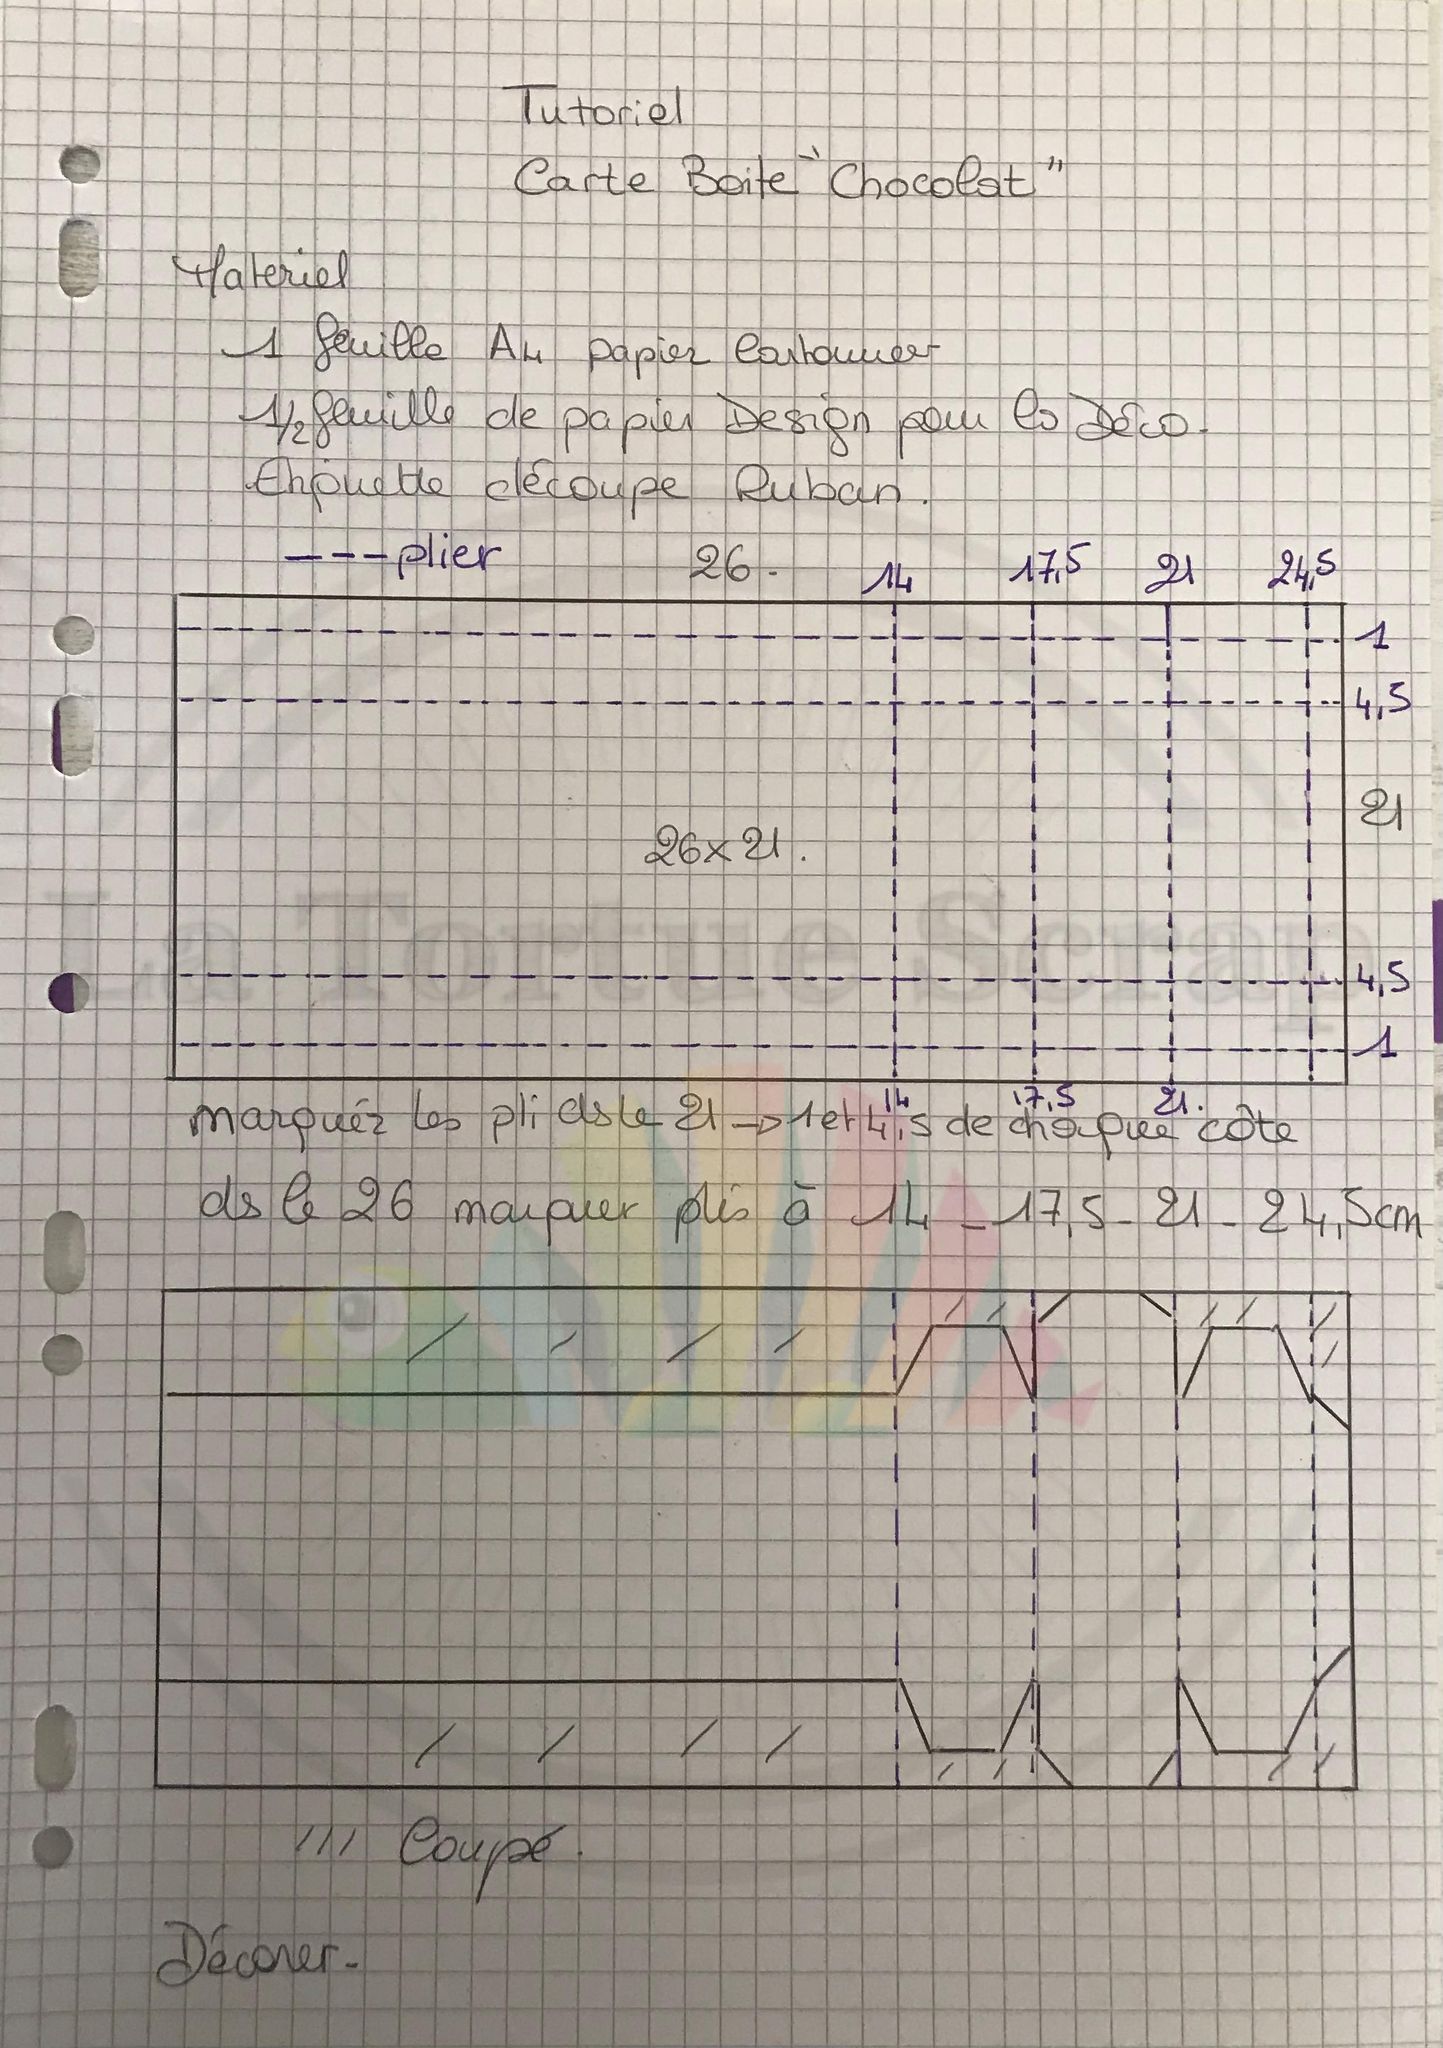 Tutoriel
Carte Boite "Chocolat"
Materiel
1 feuille A4 papier Cartonner
1/2 feuille de papier Design pour la Déco.
Etiquette découpe Ruban.
---plier 26. 14 17,5 21 24,5
1
4,5
21
26x21.
La Tortue Scrap
4,5
1
14 17,5 21.
marquez les pli ds le 21 → 1 et 4,5 de chaque côte
ds le 26 marquer plis à 14 - 17,5 - 21 - 24,5cm
/// Coupé.
Décorer.